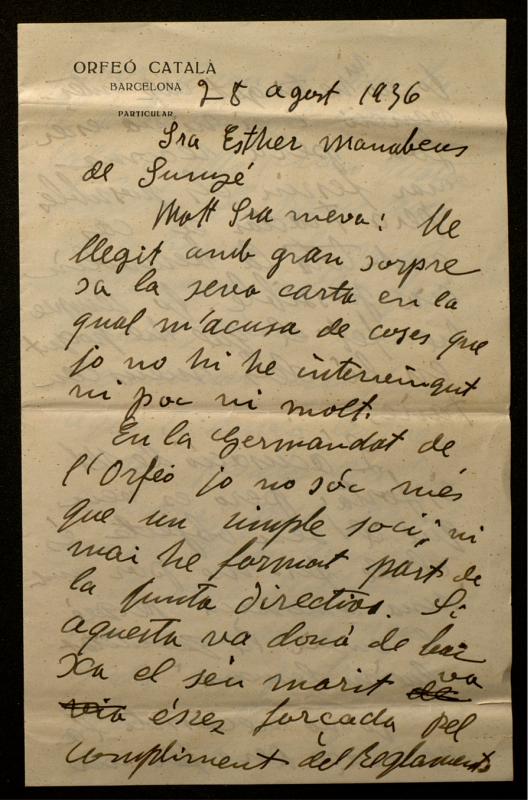 ORFEÓ CATALÀ
BARCELONA
PARTICULAR
28 agost 1936
Sra Esther Manabens
de Sunyé
Molt Sra meva: He
llegit amb gran sorpre
sa la seva carta en la
qual m'acusa de coses que
jo no hi he intervingut
ni poc ni molt.
En la Germandat de
l'Orfeó jo no sóc més
que un simple soci, ni
mai he format part de
la junta directiva. Si
aquesta va doná de bai
xa el séu marit va
ésser forçada pel
compliment del Reglament